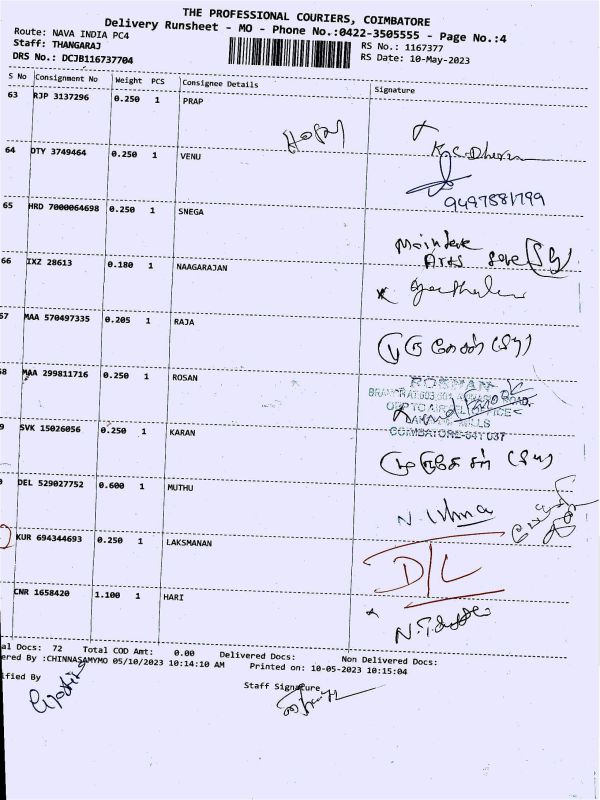 THE PROFESSIONAL COURIERS, COIMBATORE
Delivery Runsheet - MO - Phone No.:0422-3505555 - Page No.:4
Route: NAVA INDIA PC4
Staff: THANGARAJ
RS No.: 1167377
DRS No.: DCJB116737704
RS Date: 10-May-2023
S No Consignment No Weight PCS Consignee Details Signature
63 RJP 3137296 0.250 1 PRAP
K.S. Dharan
64 DTY 3749464 0.250 1 VENU
9497881799
65 HRD 7000064698 0.250 1 SNEGA
66 IXZ 28613 0.180 1 NAAGARAJAN
67 MAA 570497335 0.205 1 RAJA
68 MAA 299811716 0.250 1 ROSAN
COIMBATORE-641 037
9 SVK 15026056 0.250 1 KARAN
0 DEL 529027752 0.600 1 MUTHU
N. Uma
KUR 694344693 0.250 1 LAKSMANAN
D/L
CNR 1658420 1.100 1 HARI
al Docs: 72 Total COD Amt: 0.00 Delivered Docs: Non Delivered Docs:
ered By :CHINNASAMYMO 05/10/2023 10:14:10 AM Printed on: 10-05-2023 10:15:04
ified By
Staff Signature